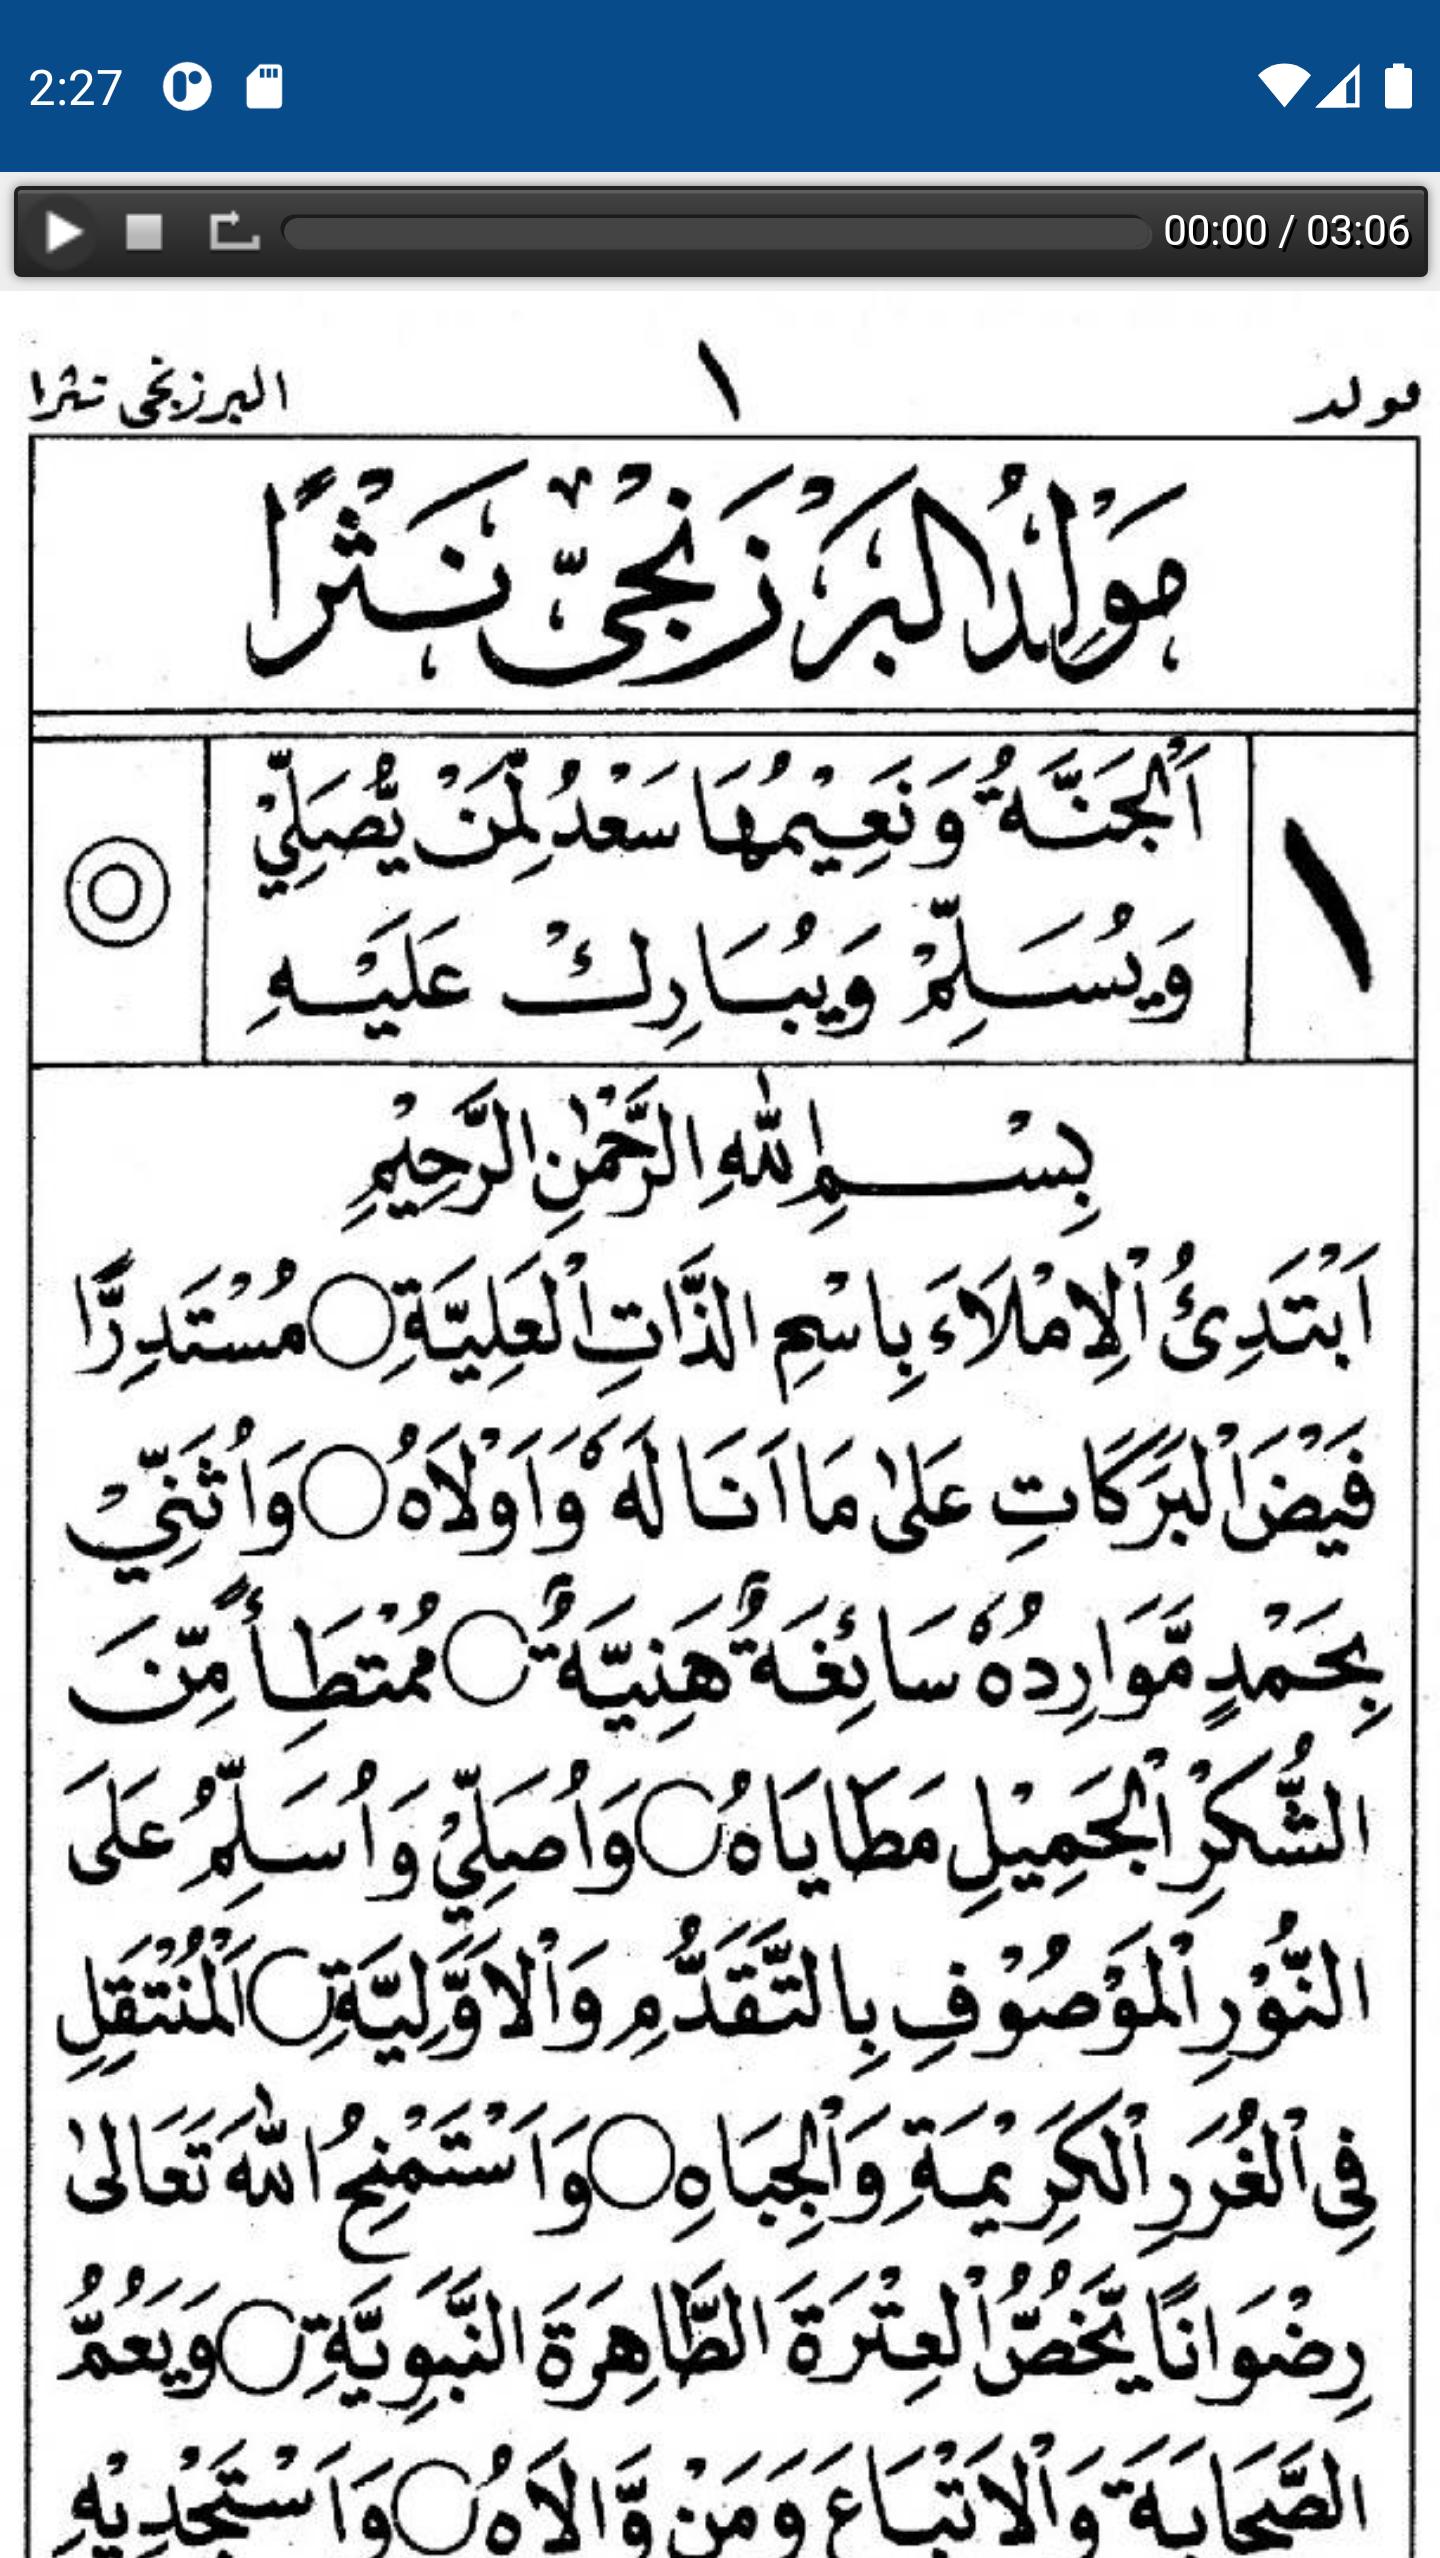 2:27
00:00 / 03:06
مولد ١ البرزنجي نثرا
مَوْلِدُ الْبَرْزَنْجِيّ نَثْرًا
١
اَلْجَنَّةُ وَنَعِيْمُهَا سَعْدٌ لِّمَنْ يُّصَلِّيْ
وَيُسَلِّمْ وَيُبَارِكْ عَلَيْهِ
بِسْمِ اللهِ الرَّحْمٰنِ الرَّحِيْمِ
اَبْتَدِئُ الْاِمْلَاءَ بِاسْمِ الذَّاتِ الْعَلِيَّةِ ○ مُسْتَدِرًّا
فَيْضَ الْبَرَكَاتِ عَلٰى مَا اَنَا لَهٗ وَاَوْلَاهُ ○ وَاُثَنِّيْ
بِحَمْدٍ مَّوَارِدُهٗ سَائِغَةٌ هَنِيَّةٌ ○ مُمْتَطِأً مِّنَ
الشُّكْرِ الْجَمِيْلِ مَطَايَاهُ ○ وَاُصَلِّيْ وَاُسَلِّمُ عَلَى
النُّوْرِ الْمَوْصُوْفِ بِالتَّقَدُّمِ وَالْاَوَّلِيَّةِ ○ اَلْمُنْتَقِلِ
فِى الْغُرَرِ الْكَرِيْمَةِ وَالْجِبَاهِ ○ وَاَسْتَمْنِحُ اللهَ تَعَالٰى
رِضْوَانًا يَّخُصُّ الْعِتْرَةَ الطَّاهِرَةَ النَّبَوِيَّةِ ○ وَيَعُمُّ
الصَّحَابَةَ وَالْاَتْبَاعَ وَمَنْ وَّالَاهُ ○ وَاَسْتَجْدِيْهِ